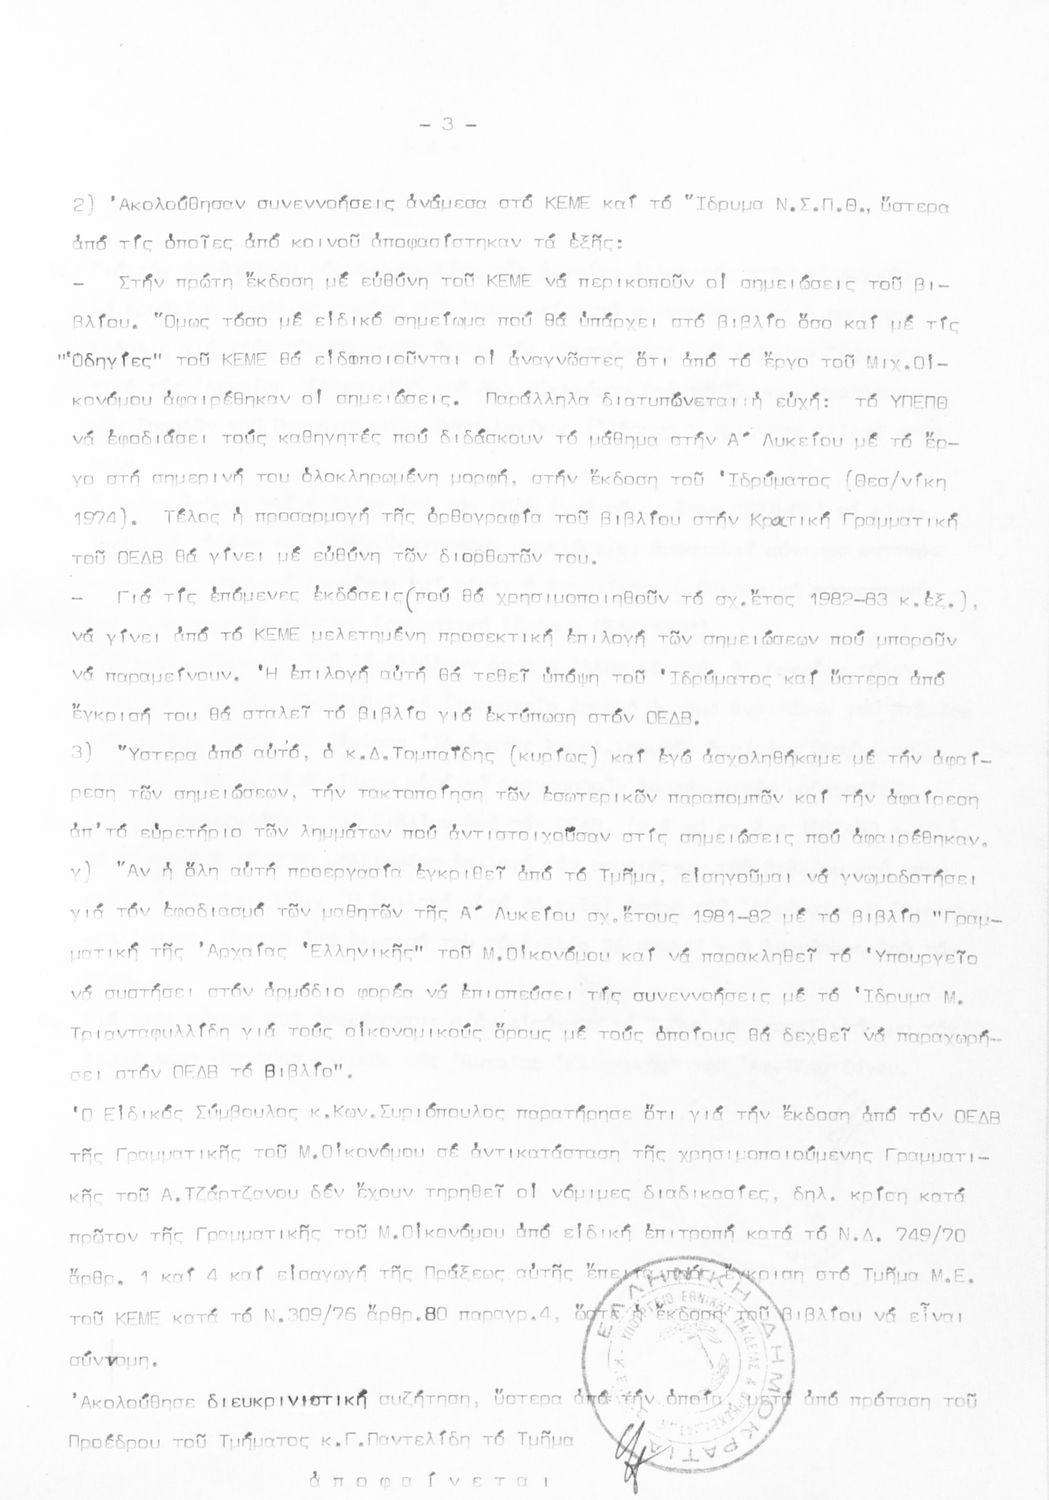 - 3 -
2) Ἀκολούθησαν συνεννοήσεις ἀνάμεσα στό ΚΕΜΕ καί τό Ἵδρυμα Ν.Σ.Π.Θ., ὕστερα
ἀπό τίς ὁποῖες ἀπό κοινοῦ ἀποφασίστηκαν τά ἑξῆς:
- Στήν πρώτη ἔκδοση μέ εὐθύνη τοῦ ΚΕΜΕ νά περικοποῦν οἱ σημειώσεις τοῦ βι-
βλίου. Ὅμως τόσο μέ εἰδικό σημείωμα πού θά ὑπάρχει στό βιβλίο ὅσο καί μέ τίς
"Ὁδηγίες" τοῦ ΚΕΜΕ θά εἰδφποιοῦνται οἱ ἀναγνῶστες ὅτι ἀπό τό ἔργο τοῦ Μιχ.Οἰ-
κονόμου ἀφαιρέθηκαν οἱ σημειώσεις. Παράλληλα διατυπώνεται ἡ εὐχή: τό ΥΠΕΠΘ
νά ἐφοδιάσει τούς καθηγητές πού διδάσκουν τό μάθημα στήν Α΄ Λυκείου μέ τό ἔρ-
γο στή σημερινή του ὁλοκληρωμένη μορφή, στήν ἔκδοση τοῦ Ἱδρύματος (Θεσ/νίκη
1974). Τέλος ἡ προσαρμογή τῆς ὀρθογραφία τοῦ βιβλίου στήν Κρατική Γραμματική
τοῦ ΟΕΔΒ θά γίνει μέ εὐθύνη τῶν διορθωτῶν του.
- Γιά τίς ἑπόμενες ἐκδόσεις(πού θά χρησιμοποιηθοῦν τό σχ.ἔτος 1982-83 κ.ἑξ.),
νά γίνει ἀπό τό ΚΕΜΕ μελετημένη προσεκτική ἐπιλογή τῶν σημειώσεων πού μποροῦν
νά παραμείνουν. Ἡ ἐπιλογή αὐτή θά τεθεῖ ὑπόψη τοῦ Ἱδρύματος καί ὕστερα ἀπό
ἔγκρισή του θά σταλεῖ τό βιβλίο γιά ἐκτύπωση στόν ΟΕΔΒ.
3) Ὕστερα ἀπό αὐτό, ὁ κ.Δ.Τομπαΐδης (κυρίως) καί ἐγώ ἀσχοληθήκαμε μέ τήν ἀφαί-
ρεση τῶν σημειώσεων, τήν τακτοποίηση τῶν ἐσωτερικῶν παραπομπῶν καί τήν ἀφαίρεση
ἀπ'τό εὑρετήριο τῶν λημμάτων πού ἀντιστοιχοῦσαν στίς σημειώσεις πού ἀφαιρέθηκαν.
γ) Ἄν ἡ ὅλη αὐτή προεργασία ἐγκριθεῖ ἀπό τό Τμῆμα, εἰσηγοῦμαι νά γνωμοδοτήσει
γιά τόν ἐφοδιασμό τῶν μαθητῶν τῆς Α΄ Λυκείου σχ.ἔτους 1981-82 μέ τό βιβλίο "Γραμ-
ματική τῆς Ἀρχαίας Ἑλληνικῆς" τοῦ Μ.Οἰκονόμου καί νά παρακληθεῖ τό Ὑπουργεῖο
νά συστήσει στόν ἁρμόδιο φορέα νά ἐπισπεύσει τίς συνεννοήσεις μέ τό Ἵδρυμα Μ.
Τριανταφυλλίδη γιά τούς οἰκονομικούς ὅρους μέ τούς ὁποίους θά δεχθεῖ νά παραχωρή-
σει στόν ΟΕΔΒ τό βιβλίο".
Ὁ Εἰδικός Σύμβουλος κ.Κων.Συριόπουλος παρατήρησε ὅτι γιά τήν ἔκδοση ἀπό τόν ΟΕΔΒ
τῆς Γραμματικῆς τοῦ Μ.Οἰκονόμου σέ ἀντικατάσταση τῆς χρησιμοποιούμενης Γραμματι-
κῆς τοῦ Α.Τζάρτζανου δέν ἔχουν τηρηθεῖ οἱ νόμιμες διαδικασίες, δηλ. κρίση κατά
πρῶτον τῆς Γραμματικῆς τοῦ Μ.Οἰκονόμου ἀπό εἰδική ἐπιτροπή κατά τό Ν.Δ. 749/70
ἄρθρ. 1 καί 4 καί εἰσαγωγή τῆς Πράξεως αὐτῆς ἔπειτα πρός ἔγκριση στό Τμῆμα Μ.Ε.
τοῦ ΚΕΜΕ κατά τό Ν.309/76 ἄρθρ.80 παραγρ.4, ὥστε ἡ ἔκδοση τοῦ βιβλίου νά εἶναι
σύννομη.
Ἀκολούθησε διευκρινιστική συζήτηση, ὕστερα ἀπό τήν ὁποία, μετά ἀπό πρόταση τοῦ
Προέδρου τοῦ Τμήματος κ.Γ.Παντελίδη τό Τμῆμα
ἀ π ο φ α ί ν ε τ α ι
ΕΛΛΗΝΙΚΗ ΔΗΜΟΚΡΑΤΙΑ
ΥΠΟΥΡΓΕΙΟ ΕΘΝΙΚΗΣ ΠΑΙΔΕΙΑΣ